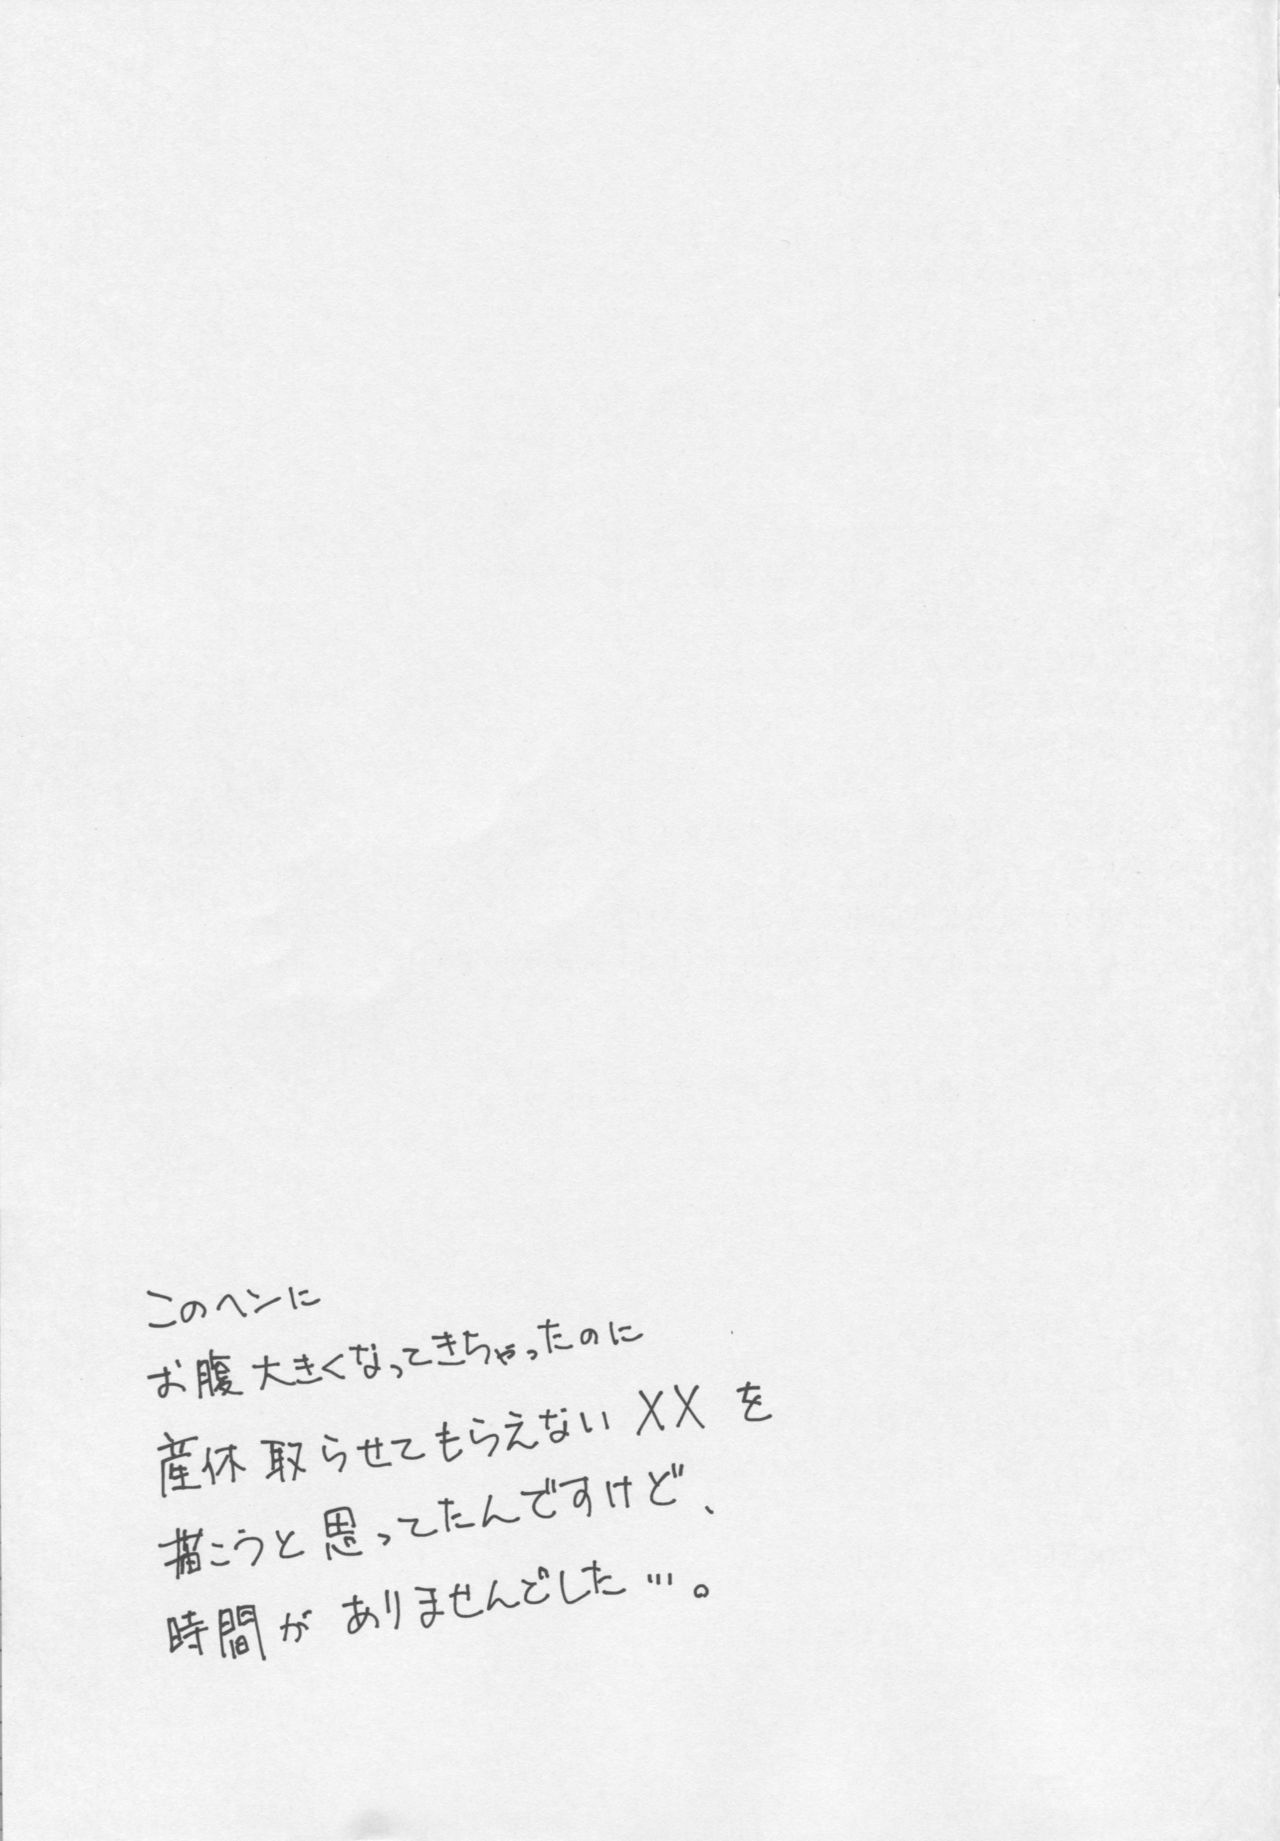 このヘンに
お腹大きくなってきちゃったのに
産休取らせてもらえないXXを
描こうと思ってたんですけど、
時間がありませんでした…。